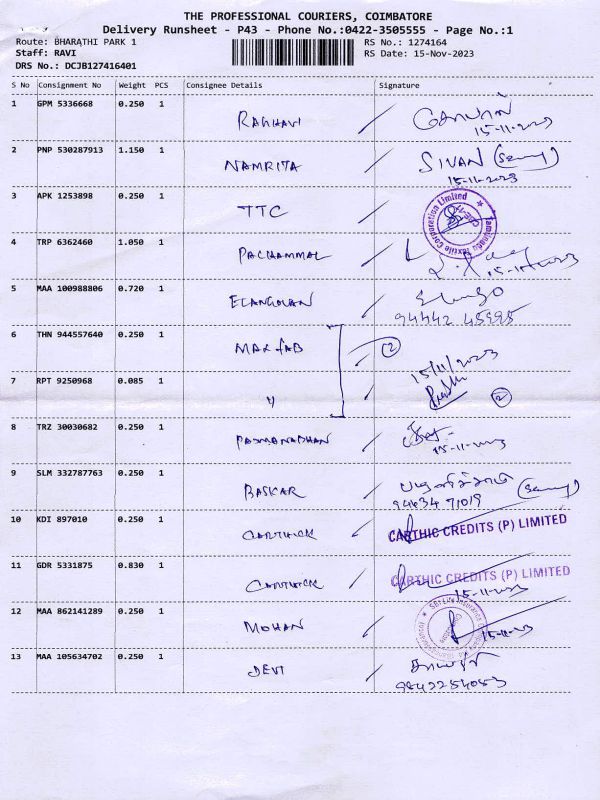 THE PROFESSIONAL COURIERS, COIMBATORE
Delivery Runsheet - P43 - Phone No.:0422-3505555 - Page No.:1
Route: BHARATHI PARK 1
RS No.: 1274164
Staff: RAVI
RS Date: 15-Nov-2023
DRS No.: DCJB127416401
S No Consignment No Weight PCS Consignee Details Signature
1 GPM 5336668 0.250 1 RAGHAVI
15-11-2023
2 PNP 530287913 1.150 1 NAMRITA SIVAN
15-11-2023
3 APK 1253898 0.250 1 TTC
Tamilnadu Textile Corporation Limited
4 TRP 6362460 1.050 1 PACHAMMAL
15-11-2023
5 MAA 100988806 0.720 1 ELANGOVAN
94442 45995
6 THN 944557640 0.250 1 MAX FAB (2)
15/11/2023
7 RPT 9250968 0.085 1 " (2)
8 TRZ 30030682 0.250 1 PADMANABHAN
15-11-2023
9 SLM 332787763 0.250 1 BASKAR
94634 71019
10 KDI 897010 0.250 1 CARTHICK CARTHIC CREDITS (P) LIMITED
11 GDR 5331875 0.830 1 CARTHICK CARTHIC CREDITS (P) LIMITED
15-11-2023
12 MAA 862141289 0.250 1 MOHAN
15-11-2023
13 MAA 105634702 0.250 1 DEVI
9842254053